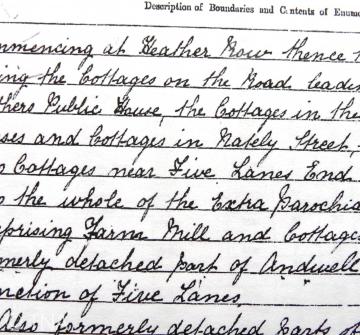 Description of Boundaries and Contents of Enume
mmencing at Heather Row thence t
ing the Cottages on the Road leadin
thers Public House, the Cottages in the
ses and Cottages in Nately Street,
Cottages near Five Lanes End
the whole of the Extra Parochia
prising Farm Mill and Cottages
merly detached part of Andwell
nction of Five Lanes
Also formerly detached parts of